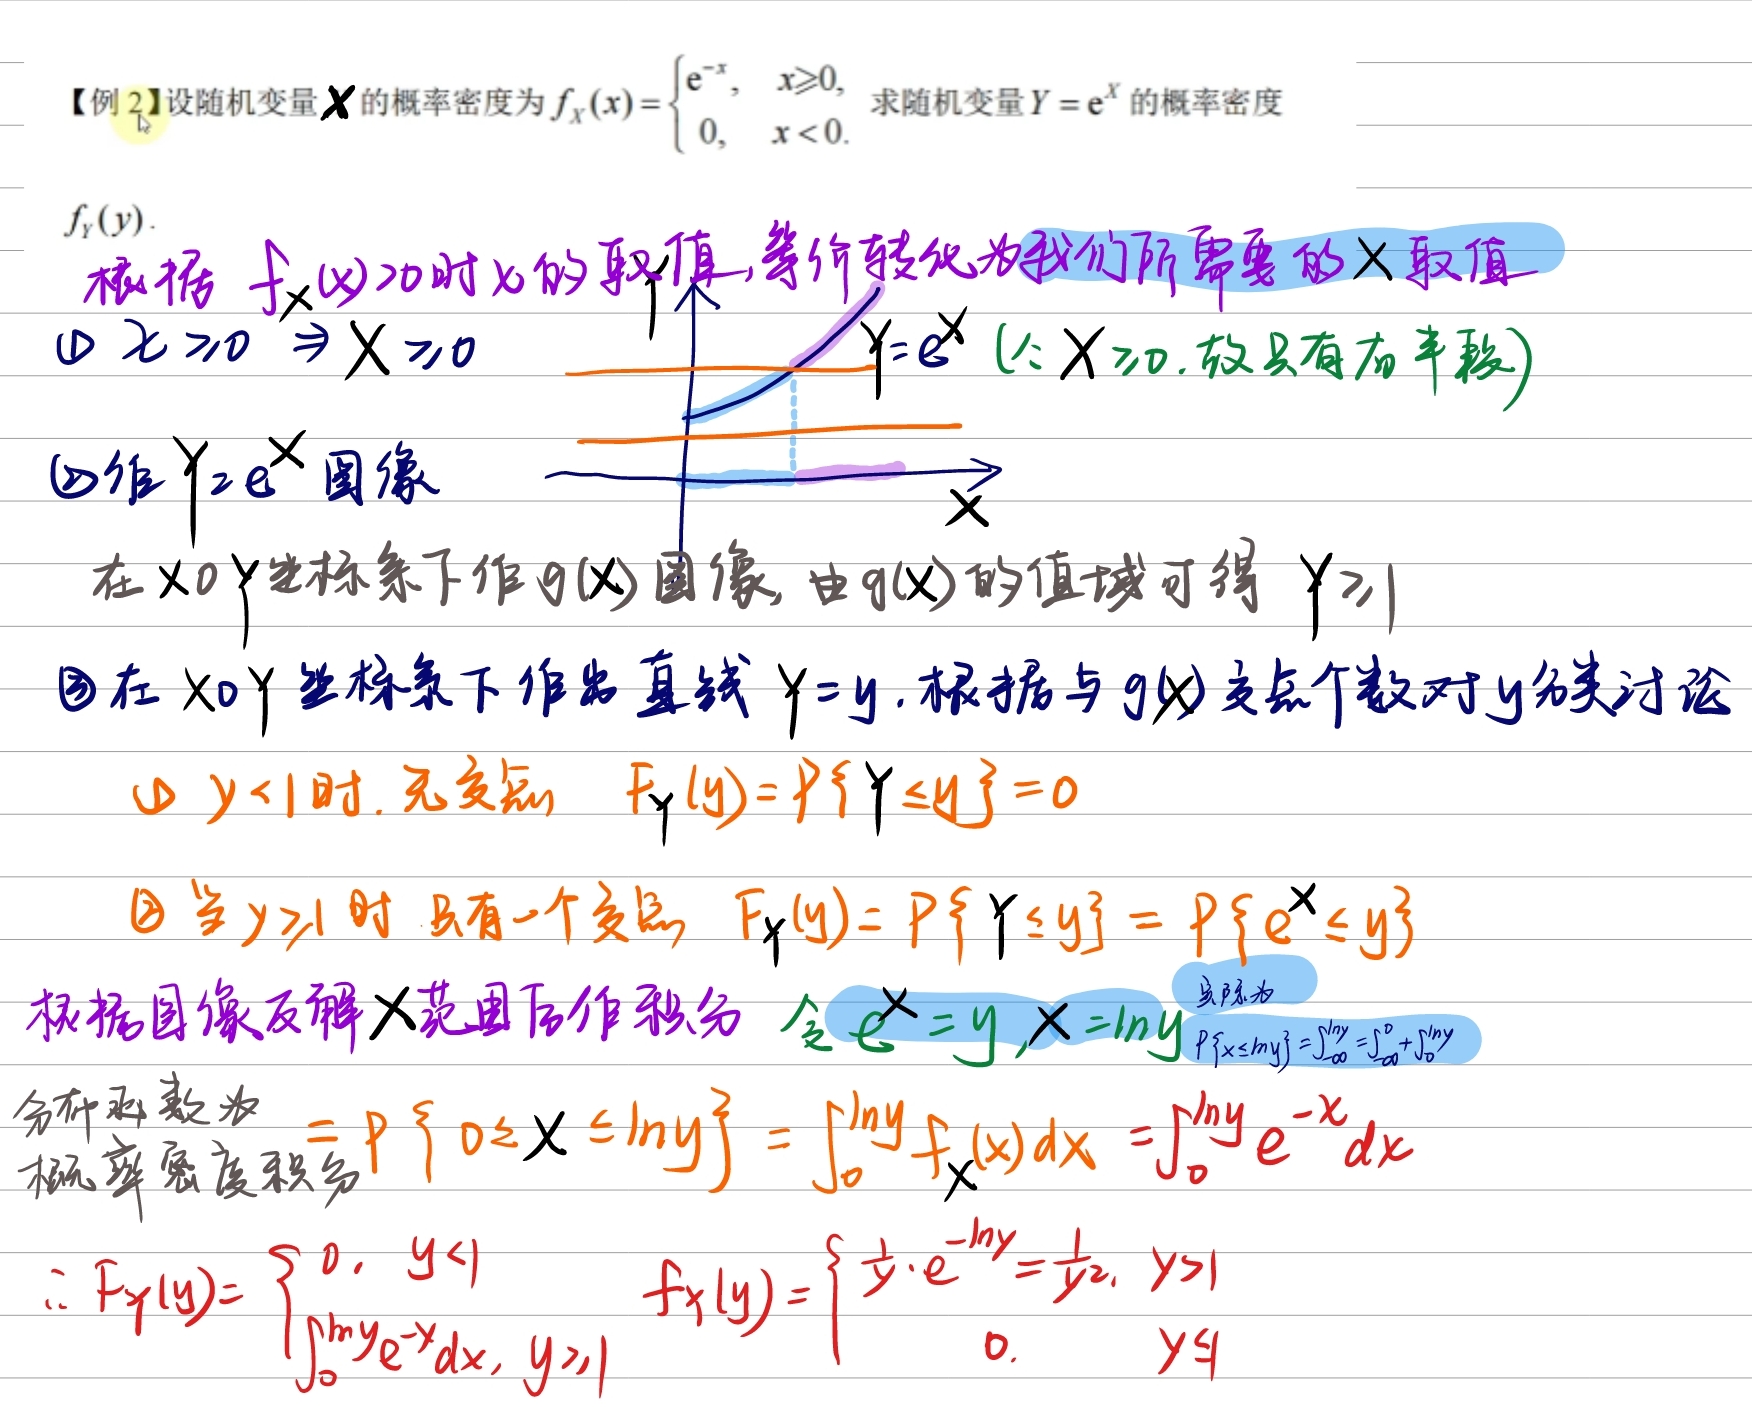 【例 2】设随机变量 X 的概率密度为 f_X(x) = { e^{-x}, x≥0, 0, x<0. 求随机变量 Y = e^X 的概率密度
f_Y(y).
根据 f_X(x)>0时x的取值,等价转化为我们所需要的X取值
① x≥0 ⇒ X≥0
Y
Y=e^X (∵X≥0.故只有右半段)
②作Y=e^X图像
X
在XOY坐标系下作g(X)图像,由g(X)的值域可得 Y≥1
③在XOY坐标系下作出直线 Y=y.根据与g(X)交点个数对y分类讨论
① y<1时.无交点 F_Y(y)=P{Y≤y}=0
② 当y≥1时 只有一个交点 F_Y(y)=P{Y≤y}=P{e^X≤y}
根据图像反解X范围后作积分 令 e^X=y,X=lny
实际为
P{x≤lny}=∫_{-∞}^{lny}=∫_{-∞}^{0}+∫_0^{lny}
分布函数为
概率密度积分
=P{0≤X≤lny}=∫_0^{lny} f_X(x)dx =∫_0^{lny} e^{-x}dx
∴ F_Y(y)= { 0, y<1 ∫_0^{lny} e^{-x}dx, y≥1
f_Y(y)= { 1/y·e^{-lny}=1/y², y>1 0. y≤1